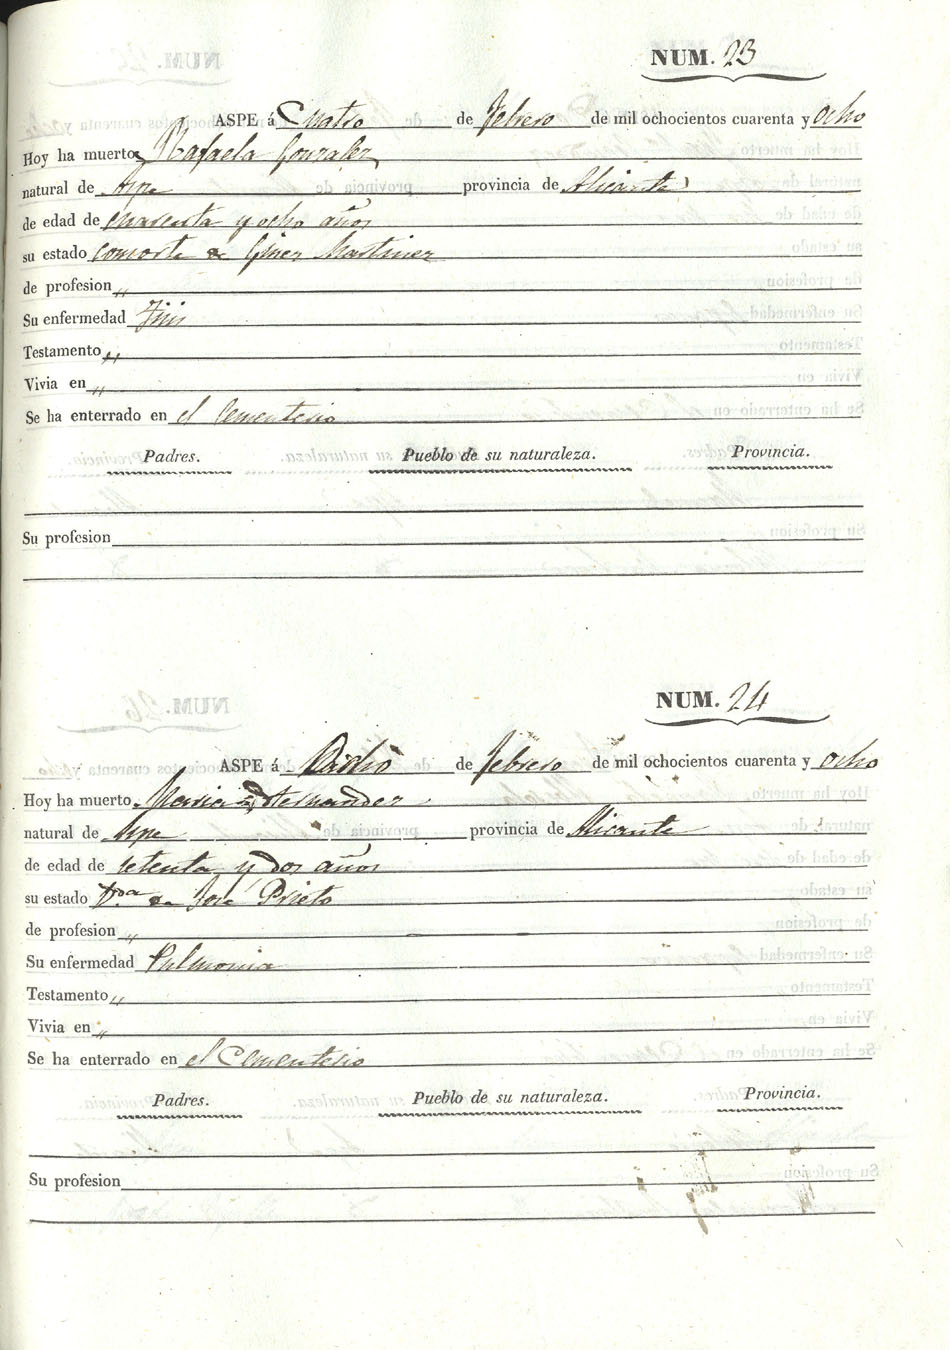 NUM. 23
ASPE á Cuatro de Febrero de mil ochocientos cuarenta y ocho
Hoy ha muerto Rafaela Gonzalez
natural de Aspe provincia de Alicante
de edad de cuarenta y ocho años
su estado consorte de Giner Martinez
de profesion „
Su enfermedad Tisis
Testamento „
Vivia en „
Se ha enterrado en el Cementerio
Padres. Pueblo de su naturaleza. Provincia.
Su profesion
NUM. 24
ASPE á de Febrero de mil ochocientos cuarenta y ocho
Hoy ha muerto Maria Hernandez
natural de Aspe provincia de Alicante
de edad de setenta y dos años
su estado V.da de José Prieto
de profesion „
Su enfermedad Pulmonia
Testamento „
Vivia en „
Se ha enterrado en el Cementerio
Padres. Pueblo de su naturaleza. Provincia.
Su profesion